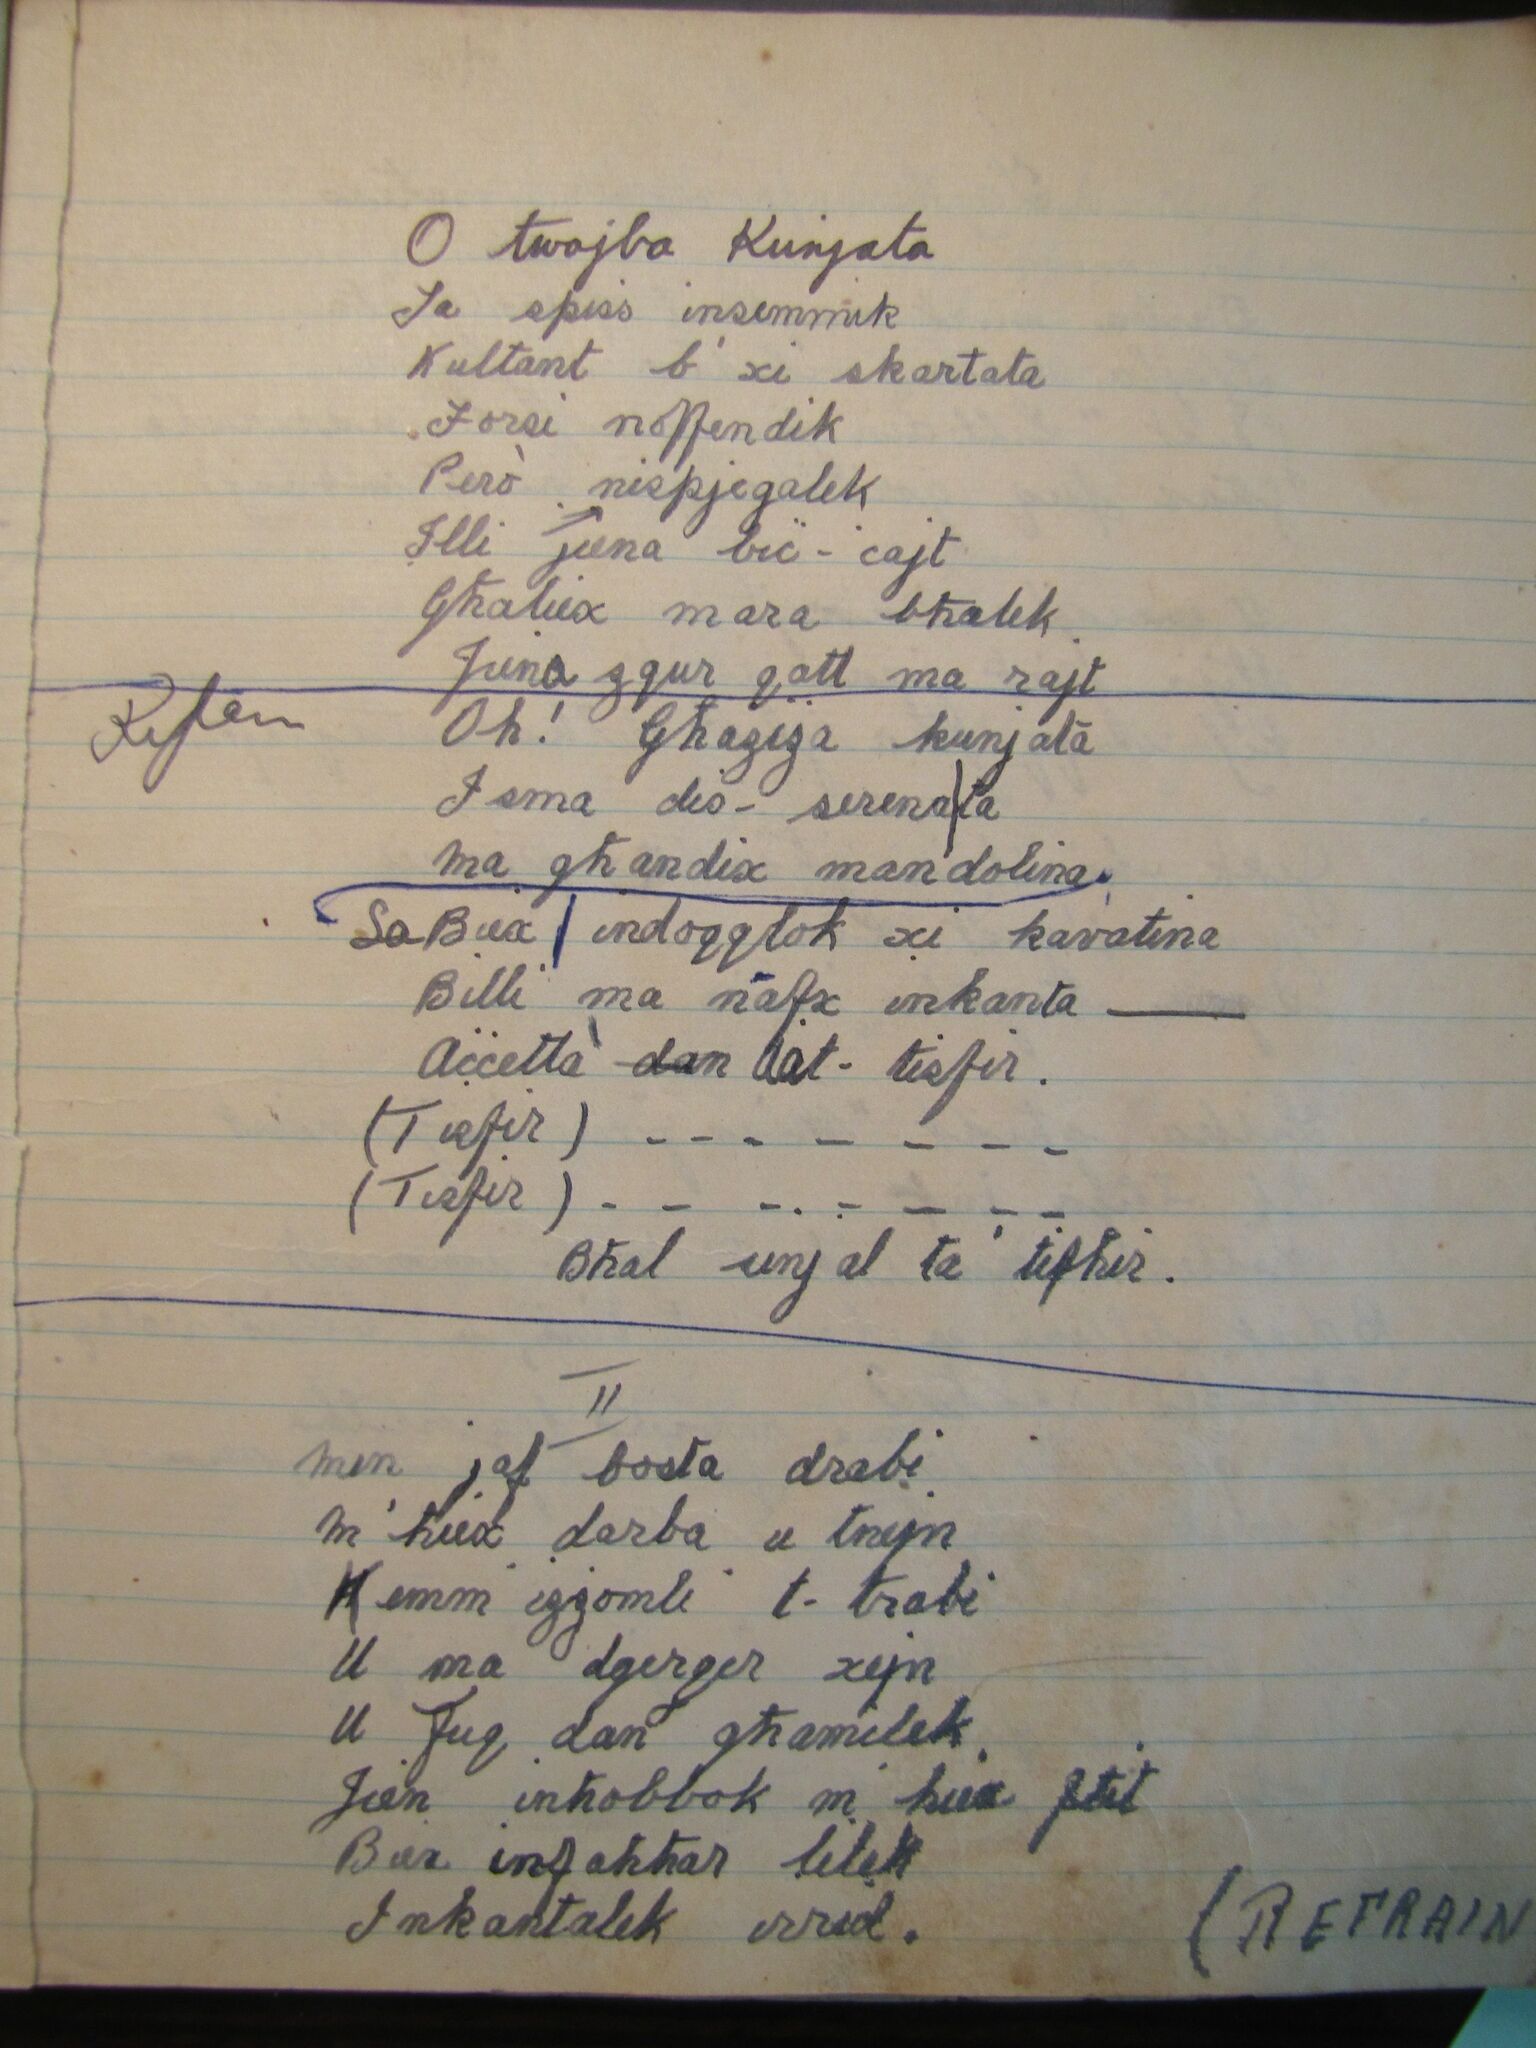 O twajba Kunjata
Ta spiss insemmik
Kultant b'xi skartata
Forsi noffendik
Però nispjegalek
Illi jiena bic-cajt
Għaliex mara bħalek
Jiena zgur qatt ma rajt
Refrain
Oh! Għaziza kunjata
Isma dis-serenata
Ma għandix mandolina
Sa Biex indoqqlok xi kavatina
Billi ma nafx inkanta
Accetta dan lat-tisfir.
(Tisfir) - - - - - - -
(Tisfir) - - - - - - -
Bħal sinjal ta' tifħir.
II
Min jaf bosta drabi
M'hiex darba u tnejn
Kemm izzomli t-trabi
U ma dgerger xejn
U fuq dan għamilek
Jien inħobbok m'hiex ftit
Biex infaħħar lilek
Inkantalek irrid.
(REFRAIN